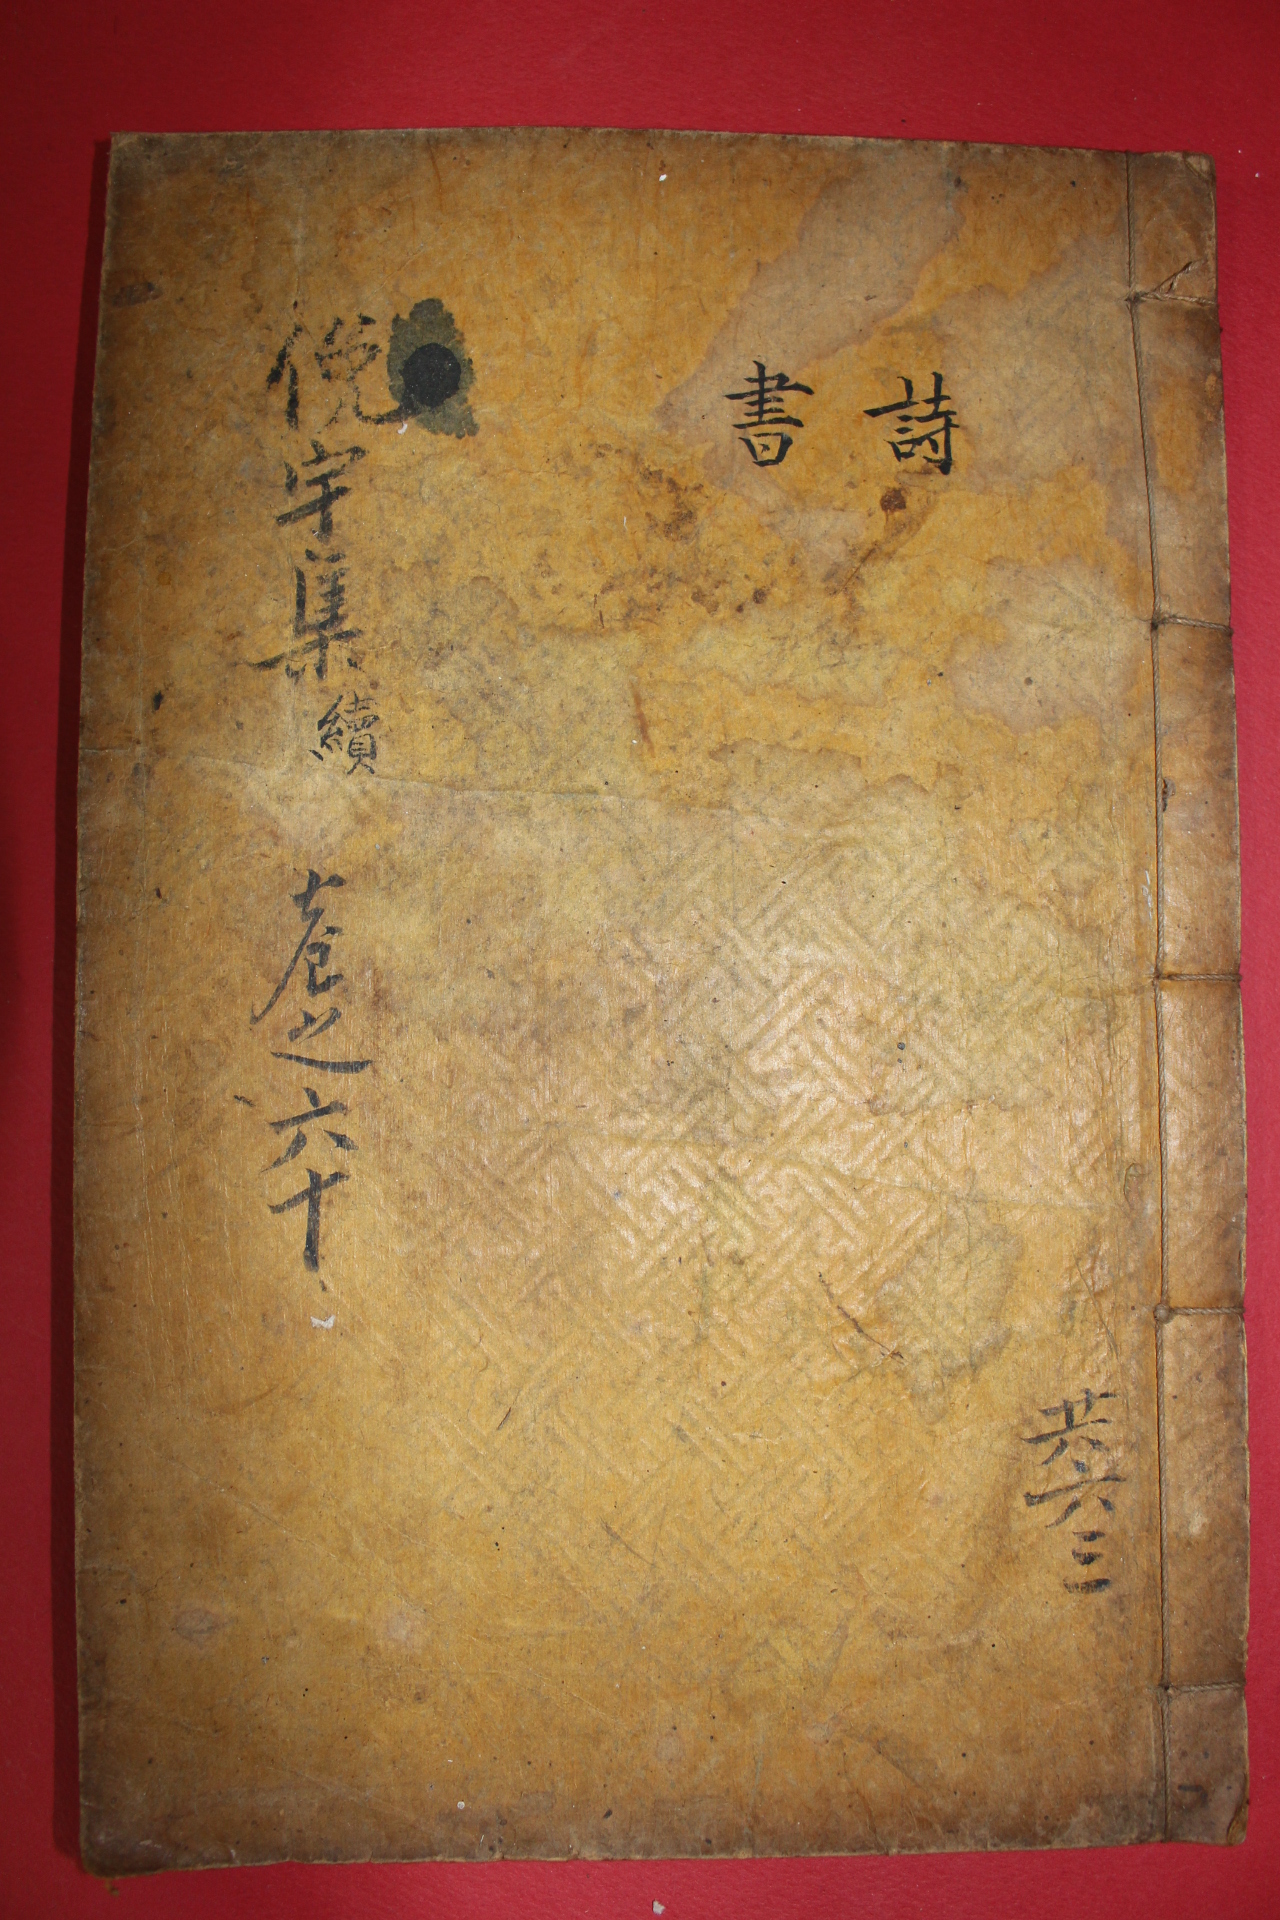 詩
書
俛宇集 續 卷之六十
共六三